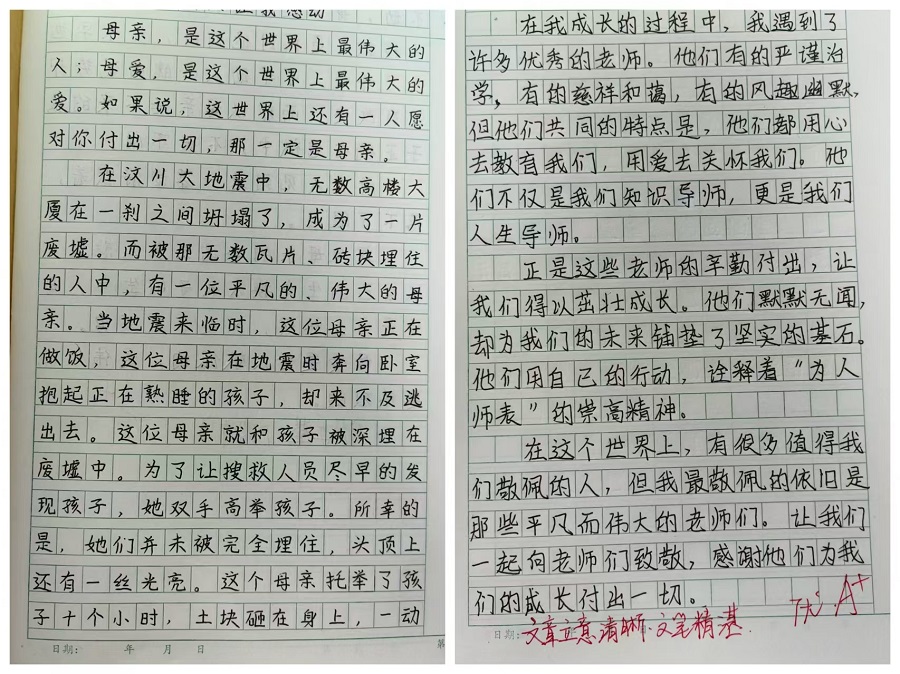 让我感动
母亲，是这个世界上最伟大的
人；母爱，是这个世界上最伟大的
爱。如果说，这世界上还有一人愿
对你付出一切，那一定是母亲。
在汶川大地震中，无数高楼大
厦在一刹之间坍塌了，成为了一片
废墟。而被那无数瓦片、砖块埋住
的人中，有一位平凡的、伟大的母
亲。当地震来临时，这位母亲正在
做饭，这位母亲在地震时奔向卧室
抱起正在熟睡的孩子，却来不及逃
出去。这位母亲就和孩子被深埋在
废墟中。为了让搜救人员尽早的发
现孩子，她双手高举孩子。所幸的
是，她们并未被完全埋住，头顶上
还有一丝光亮。这个母亲托举了孩
子十个小时，土块砸在身上，一动
日期： 年 月 日
第
在我成长的过程中，我遇到了
许多优秀的老师。他们有的严谨治
学，有的慈祥和蔼，有的风趣幽默，
但他们共同的特点是，他们都用心
去教育我们，用爱去关怀我们。他
们不仅是我们知识导师，更是我们
人生导师。
正是这些老师的辛勤付出，让
我们得以茁壮成长。他们默默无闻，
却为我们的未来铺垫了坚实的基石。
他们用自己的行动，诠释着“为人
师表”的崇高精神。
在这个世界上，有很多值得我
们敬佩的人，但我最敬佩的依旧是
那些平凡而伟大的老师们。让我们
一起向老师们致敬，感谢他们为我
们的成长付出一切。
日期：
文章立意清晰·文笔精甚
优 A+